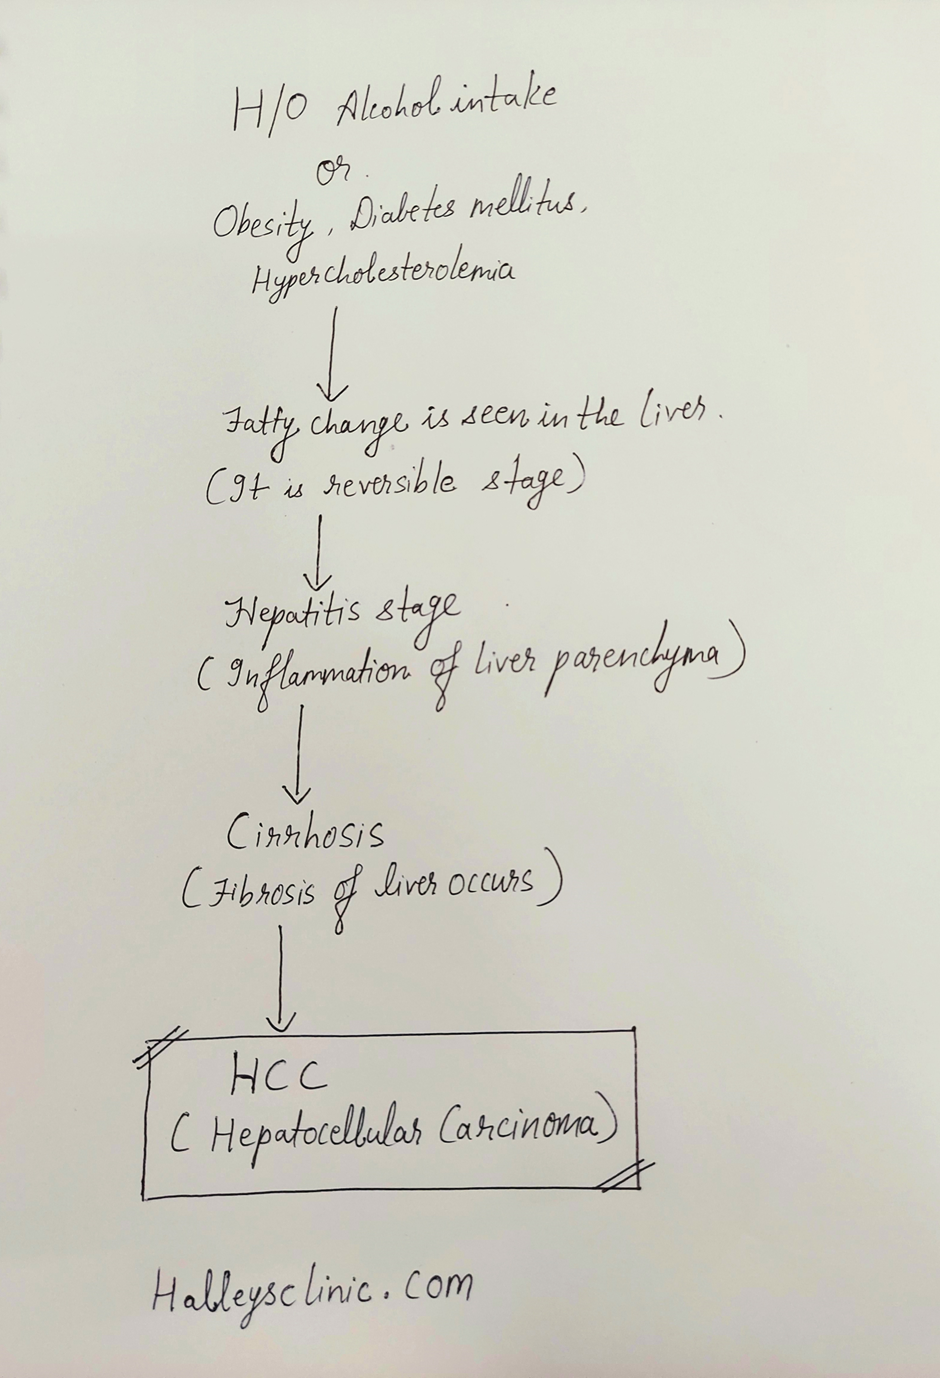 H/O Alcohol intake
or
Obesity, Diabetes mellitus,
Hypercholesterolemia
Fatty change is seen in the liver.
(It is reversible stage)
Hepatitis stage
(Inflammation of liver parenchyma)
Cirrhosis
(Fibrosis of liver occurs)
HCC
(Hepatocellular Carcinoma)
Halleysclinic.com